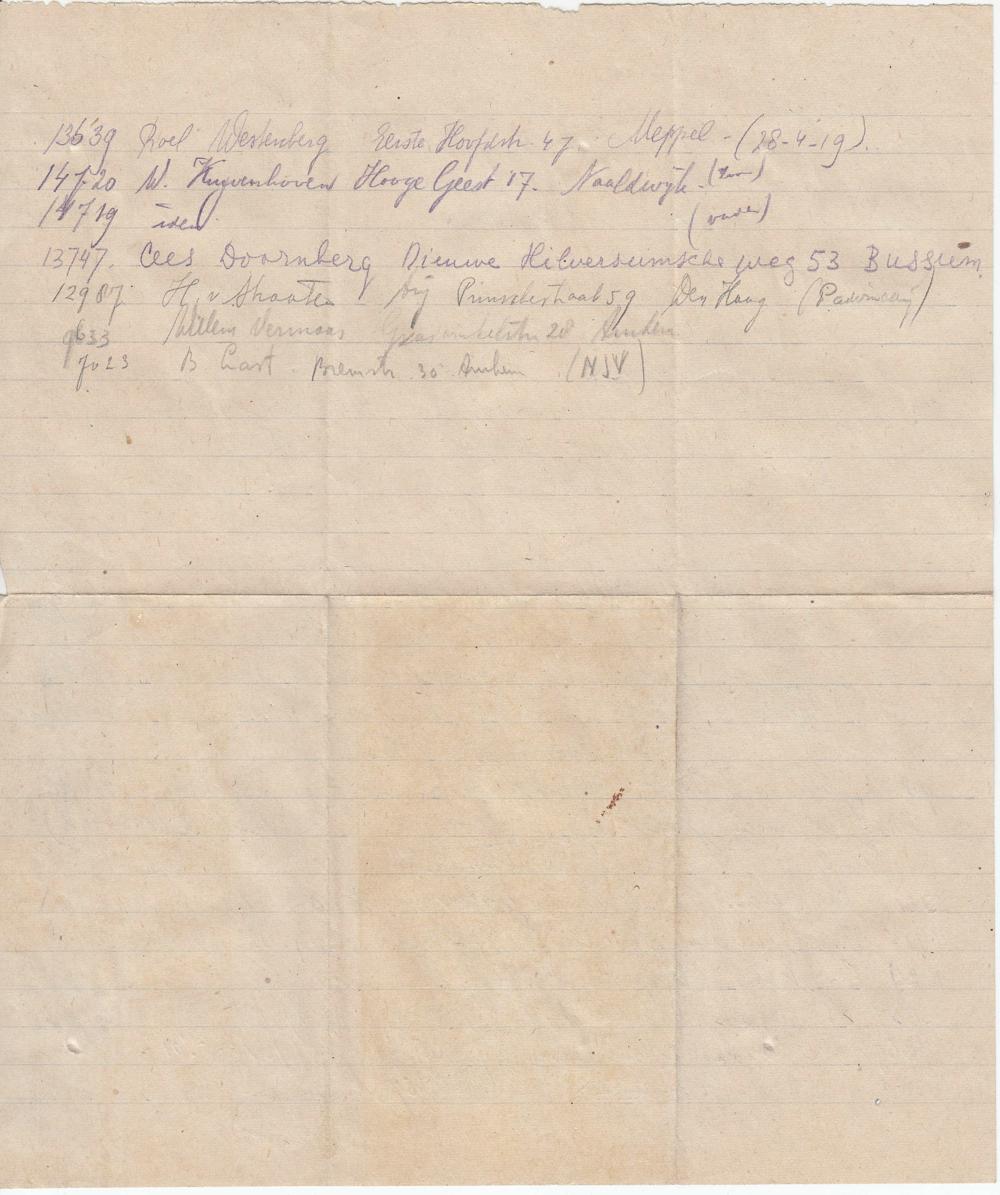 13639 Roel Westenberg Eerste Hoofdstr. 47. Meppel - (28-4-19).
14720 W. Kuyvenhoven Hooge Geest 17. Naaldwijk.
14719 idem. (vader)
13747. Cees Doornberg Nieuwe Hilversumsche weg 53 Bussum
12987. H. v Straaten 59 Den Haag
9633 Willem Vermaas 28 Arnhem
7023 B Gast. Bremstr. 30 Arnhem (NSV)